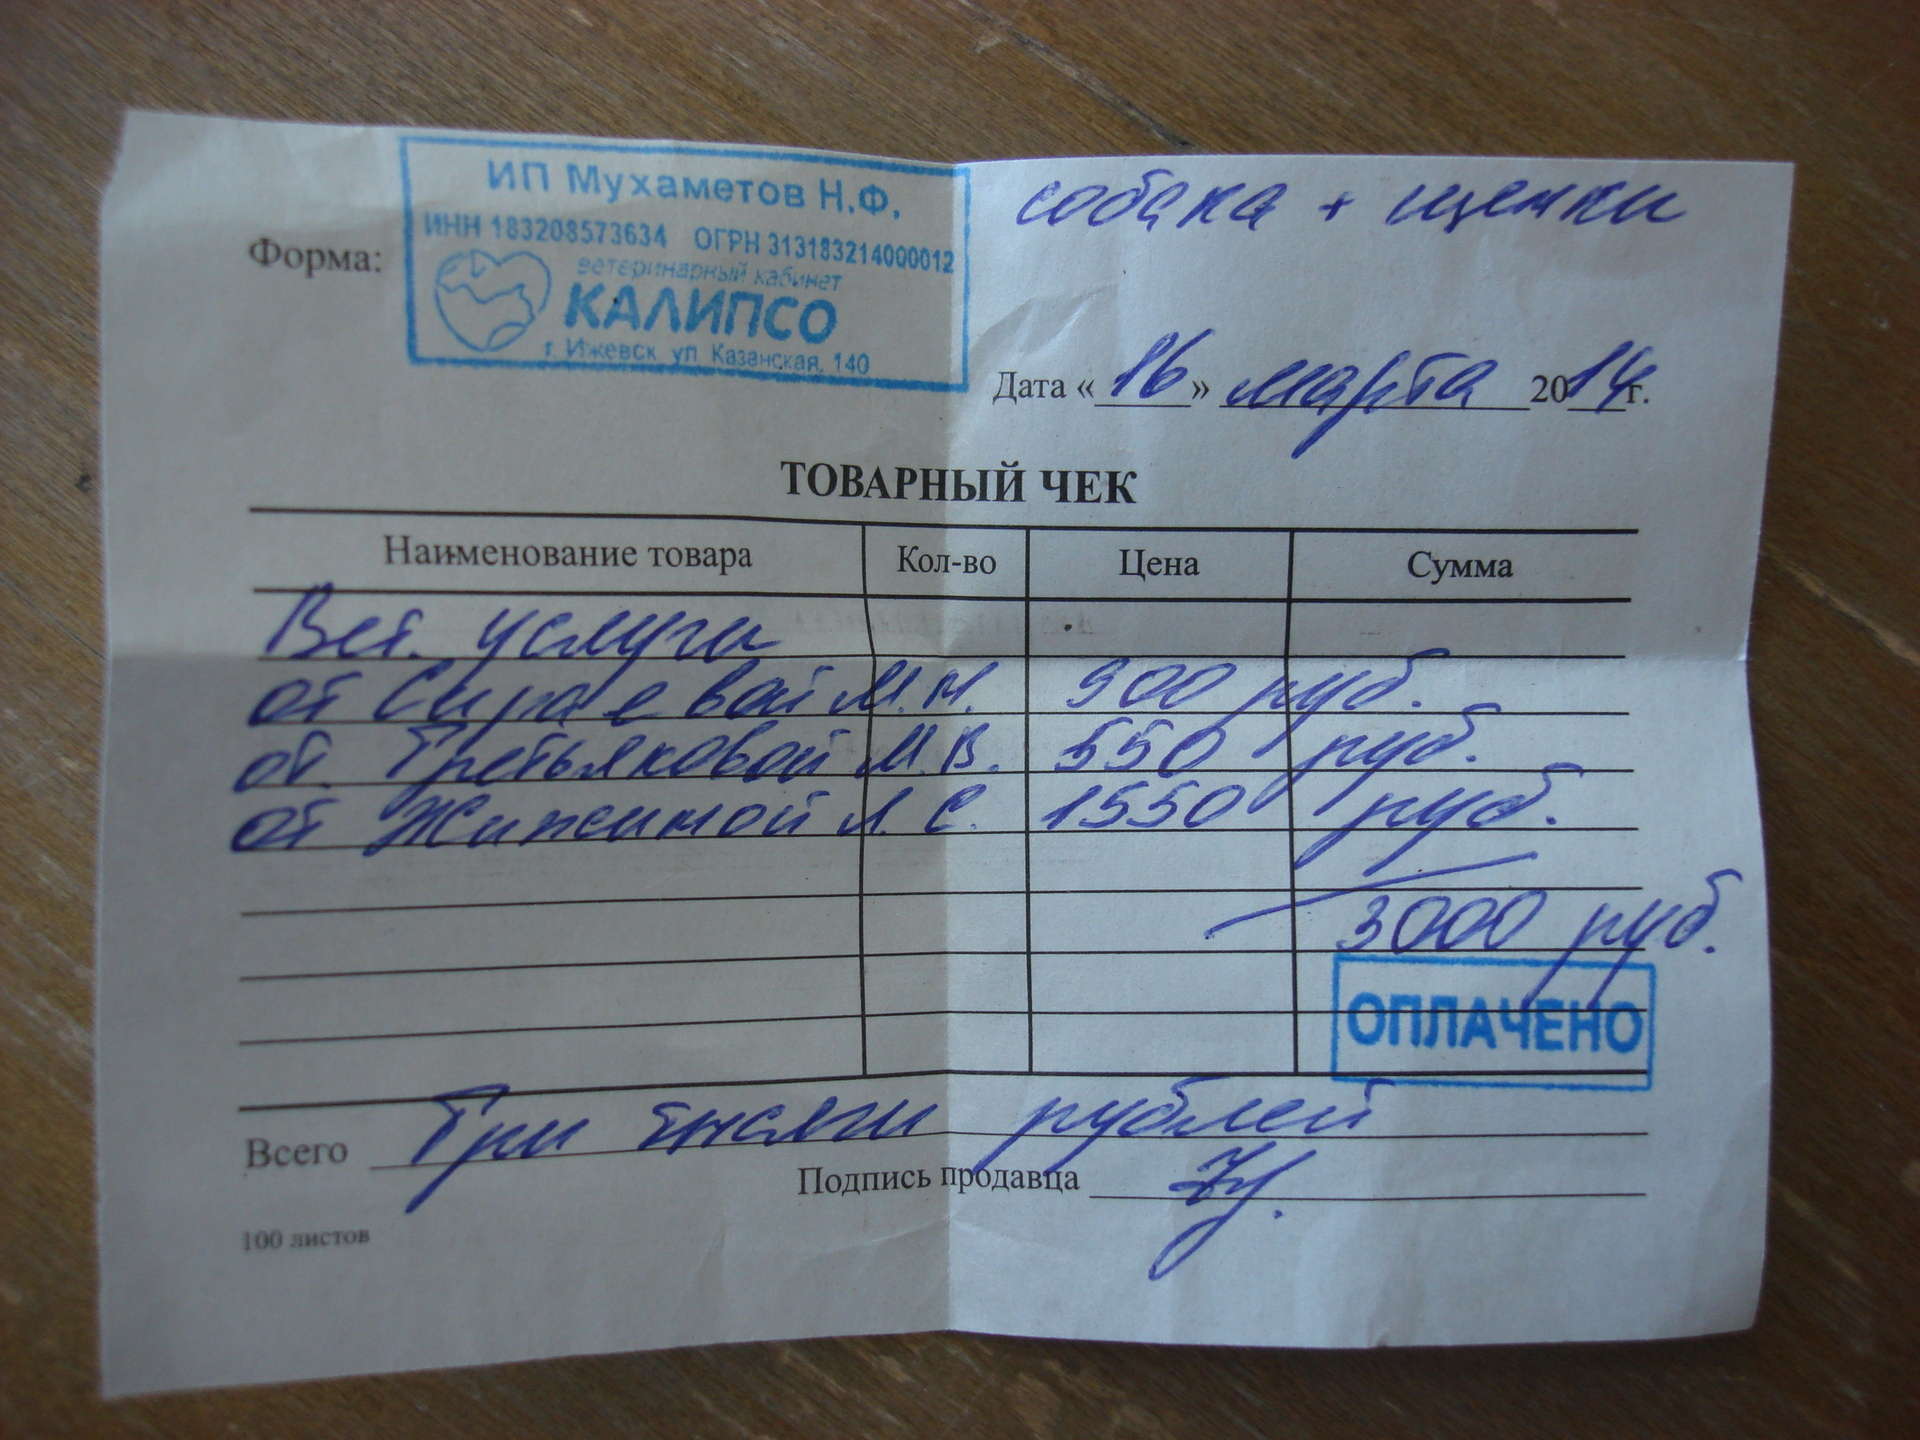 ИП Мухаметов Н.Ф.
ИНН 183208573634 ОГРН 313183214000012
ветеринарный кабинет
КАЛИПСО
г. Ижевск ул. Казанская, 140
Форма:
собака + щенки
Дата «16» марта 2014г.
ТОВАРНЫЙ ЧЕК
Наименование товара Кол-во Цена Сумма
Вет. услуги
от Сираевой М.Н. 900 руб.
от. Третьяковой М.В. 550 руб.
от Жижиной Л.С. 1550 руб.
3000 руб.
ОПЛАЧЕНО
Всего Три тысячи рублей
Подпись продавца
100 листов